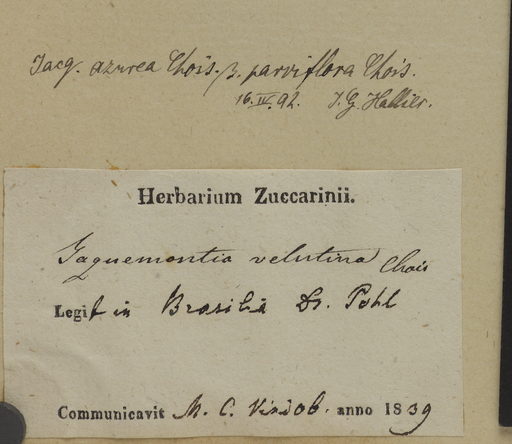 Jacq. azurea Chois. β. parviflora Chois.
16.IV.92. J. G. Hallier.
Herbarium Zuccarinii.
Jaquemontia velutina Chois
Legit in Brasilia Dr. Pohl
Communicavit M. C. Vindob. anno 1839